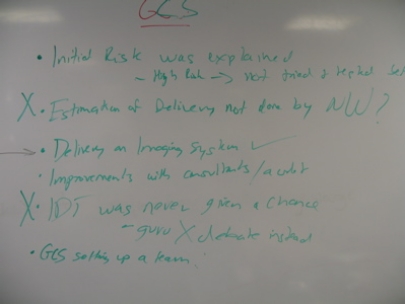 GCS
• Initial Risk was explained
~ High Risk → not tried & tested set
X • Estimation of Delivery not done by NW?
→ • Delivery on Imaging System ✓
• Improvements with consultants/a cubt
X • IDT was never given a chance
- guru X debate instead
• GCS setting up a team.